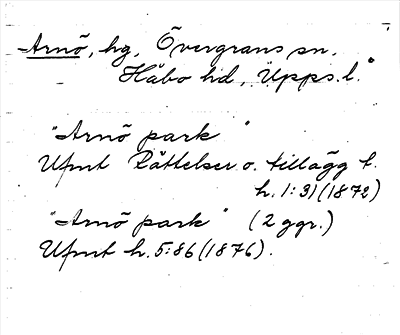 Arnö, hg, Övergrans sn.
Håbo hd, Upps.l.
"Arnö park"
Ufmt Rättelser o. tillägg t.
h. 1:31 (1872)
"Arnö park" (2 ggr.)
Ufmt h. 5:86 (1876).